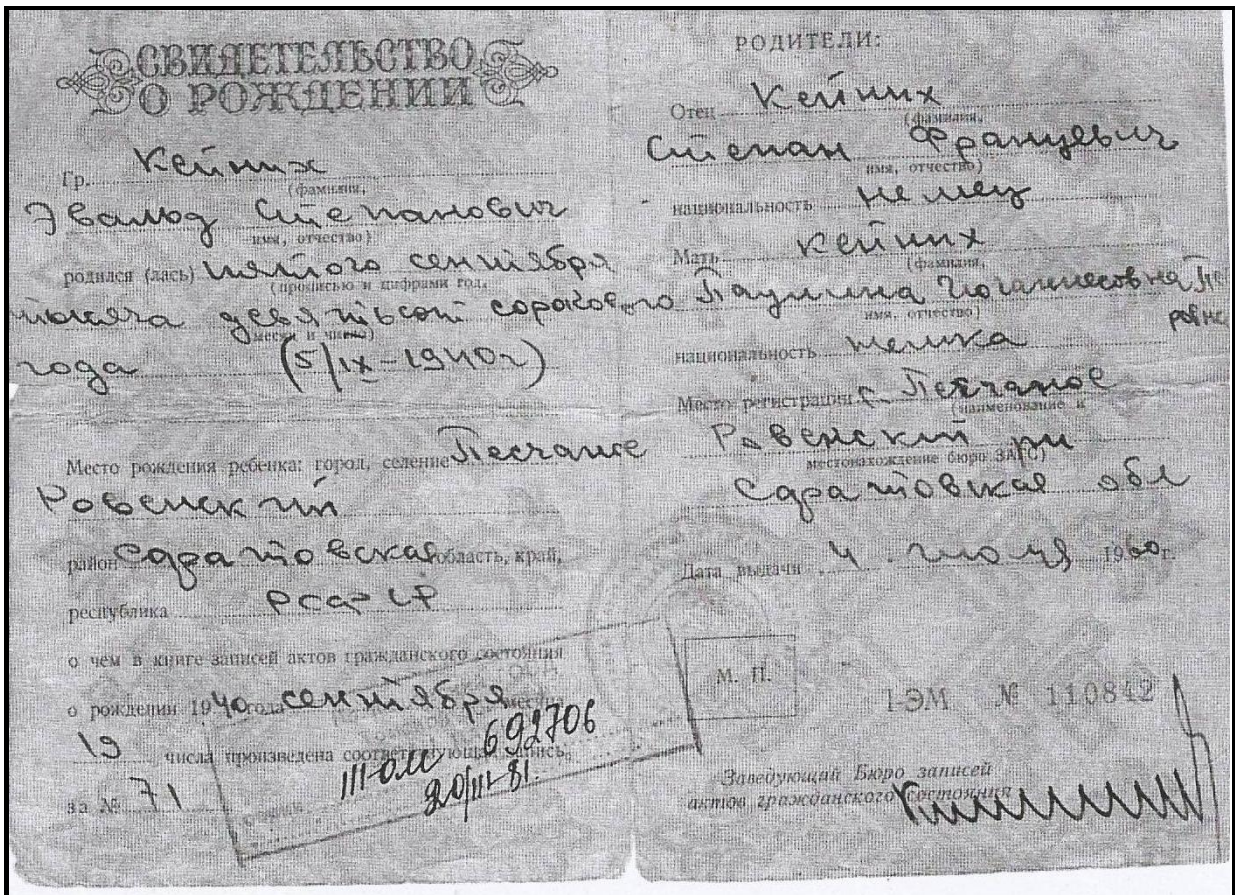 СВИДЕТЕЛЬСТВО
О РОЖДЕНИИ
Гр. Кейних
(фамилия,
Эвальд Степанович
имя, отчество)
родился (лась) пятого сентября
(прописью и цифрами год,
тысяча девятьсот сорокового
месяц и число)
года (5/IX-1940г)
Место рождения ребенка: город, селение Песчаное
Ровенский
район Саратовская область, край,
республика РСФСР
о чем в книге записей актов гражданского состояния
о рождении 1940 года сентября месяца
19 числа произведена соответствующая запись
за № 71
III-ОЛС 692706
20/III-81.
РОДИТЕЛИ:
Отец Кейних
(фамилия,
Степан Францевич
имя, отчество)
национальность немец
Мать Кейних
(фамилия,
Паулина Иоганнесовна
имя, отчество)
национальность немка
Место регистрации с. Песчаное
(наименование и
Ровенский рн
местонахождение бюро ЗАГС)
Саратовская обл
Дата выдачи 4 июля 1960г.
М. П.
I-ЭМ № 110842
Заведующий Бюро записей
актов гражданского состояния